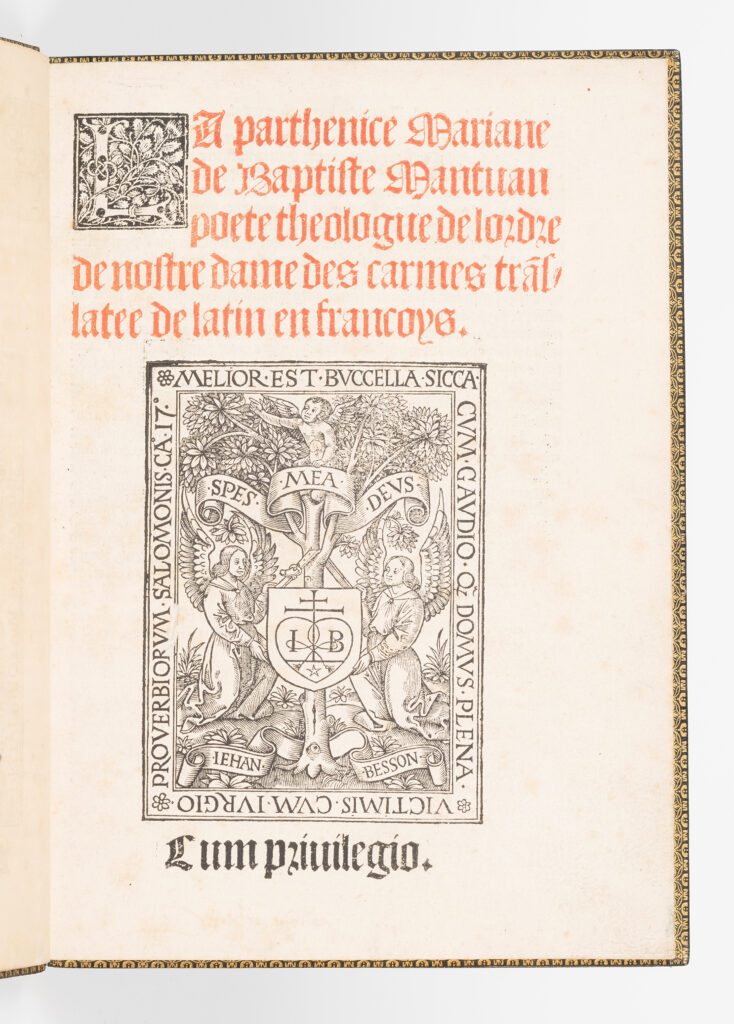 LA parthenice Mariane
de Baptiste Mantuan
poete theologue de lordre
de nostre dame des carmes trãs/
latee de latin en francoys.
MELIOR·EST·BVCCELLA·SICCA
CVM·GAVDIO·Q̃·DOMVS·PLENA·
VICTIMIS·CVM·IVRGIO
PROVERBIORVM·SALOMONIS·CA·17·
SPES· MEA· DEVS·
I B
·IEHAN· BESSON·
Cum priuilegio.